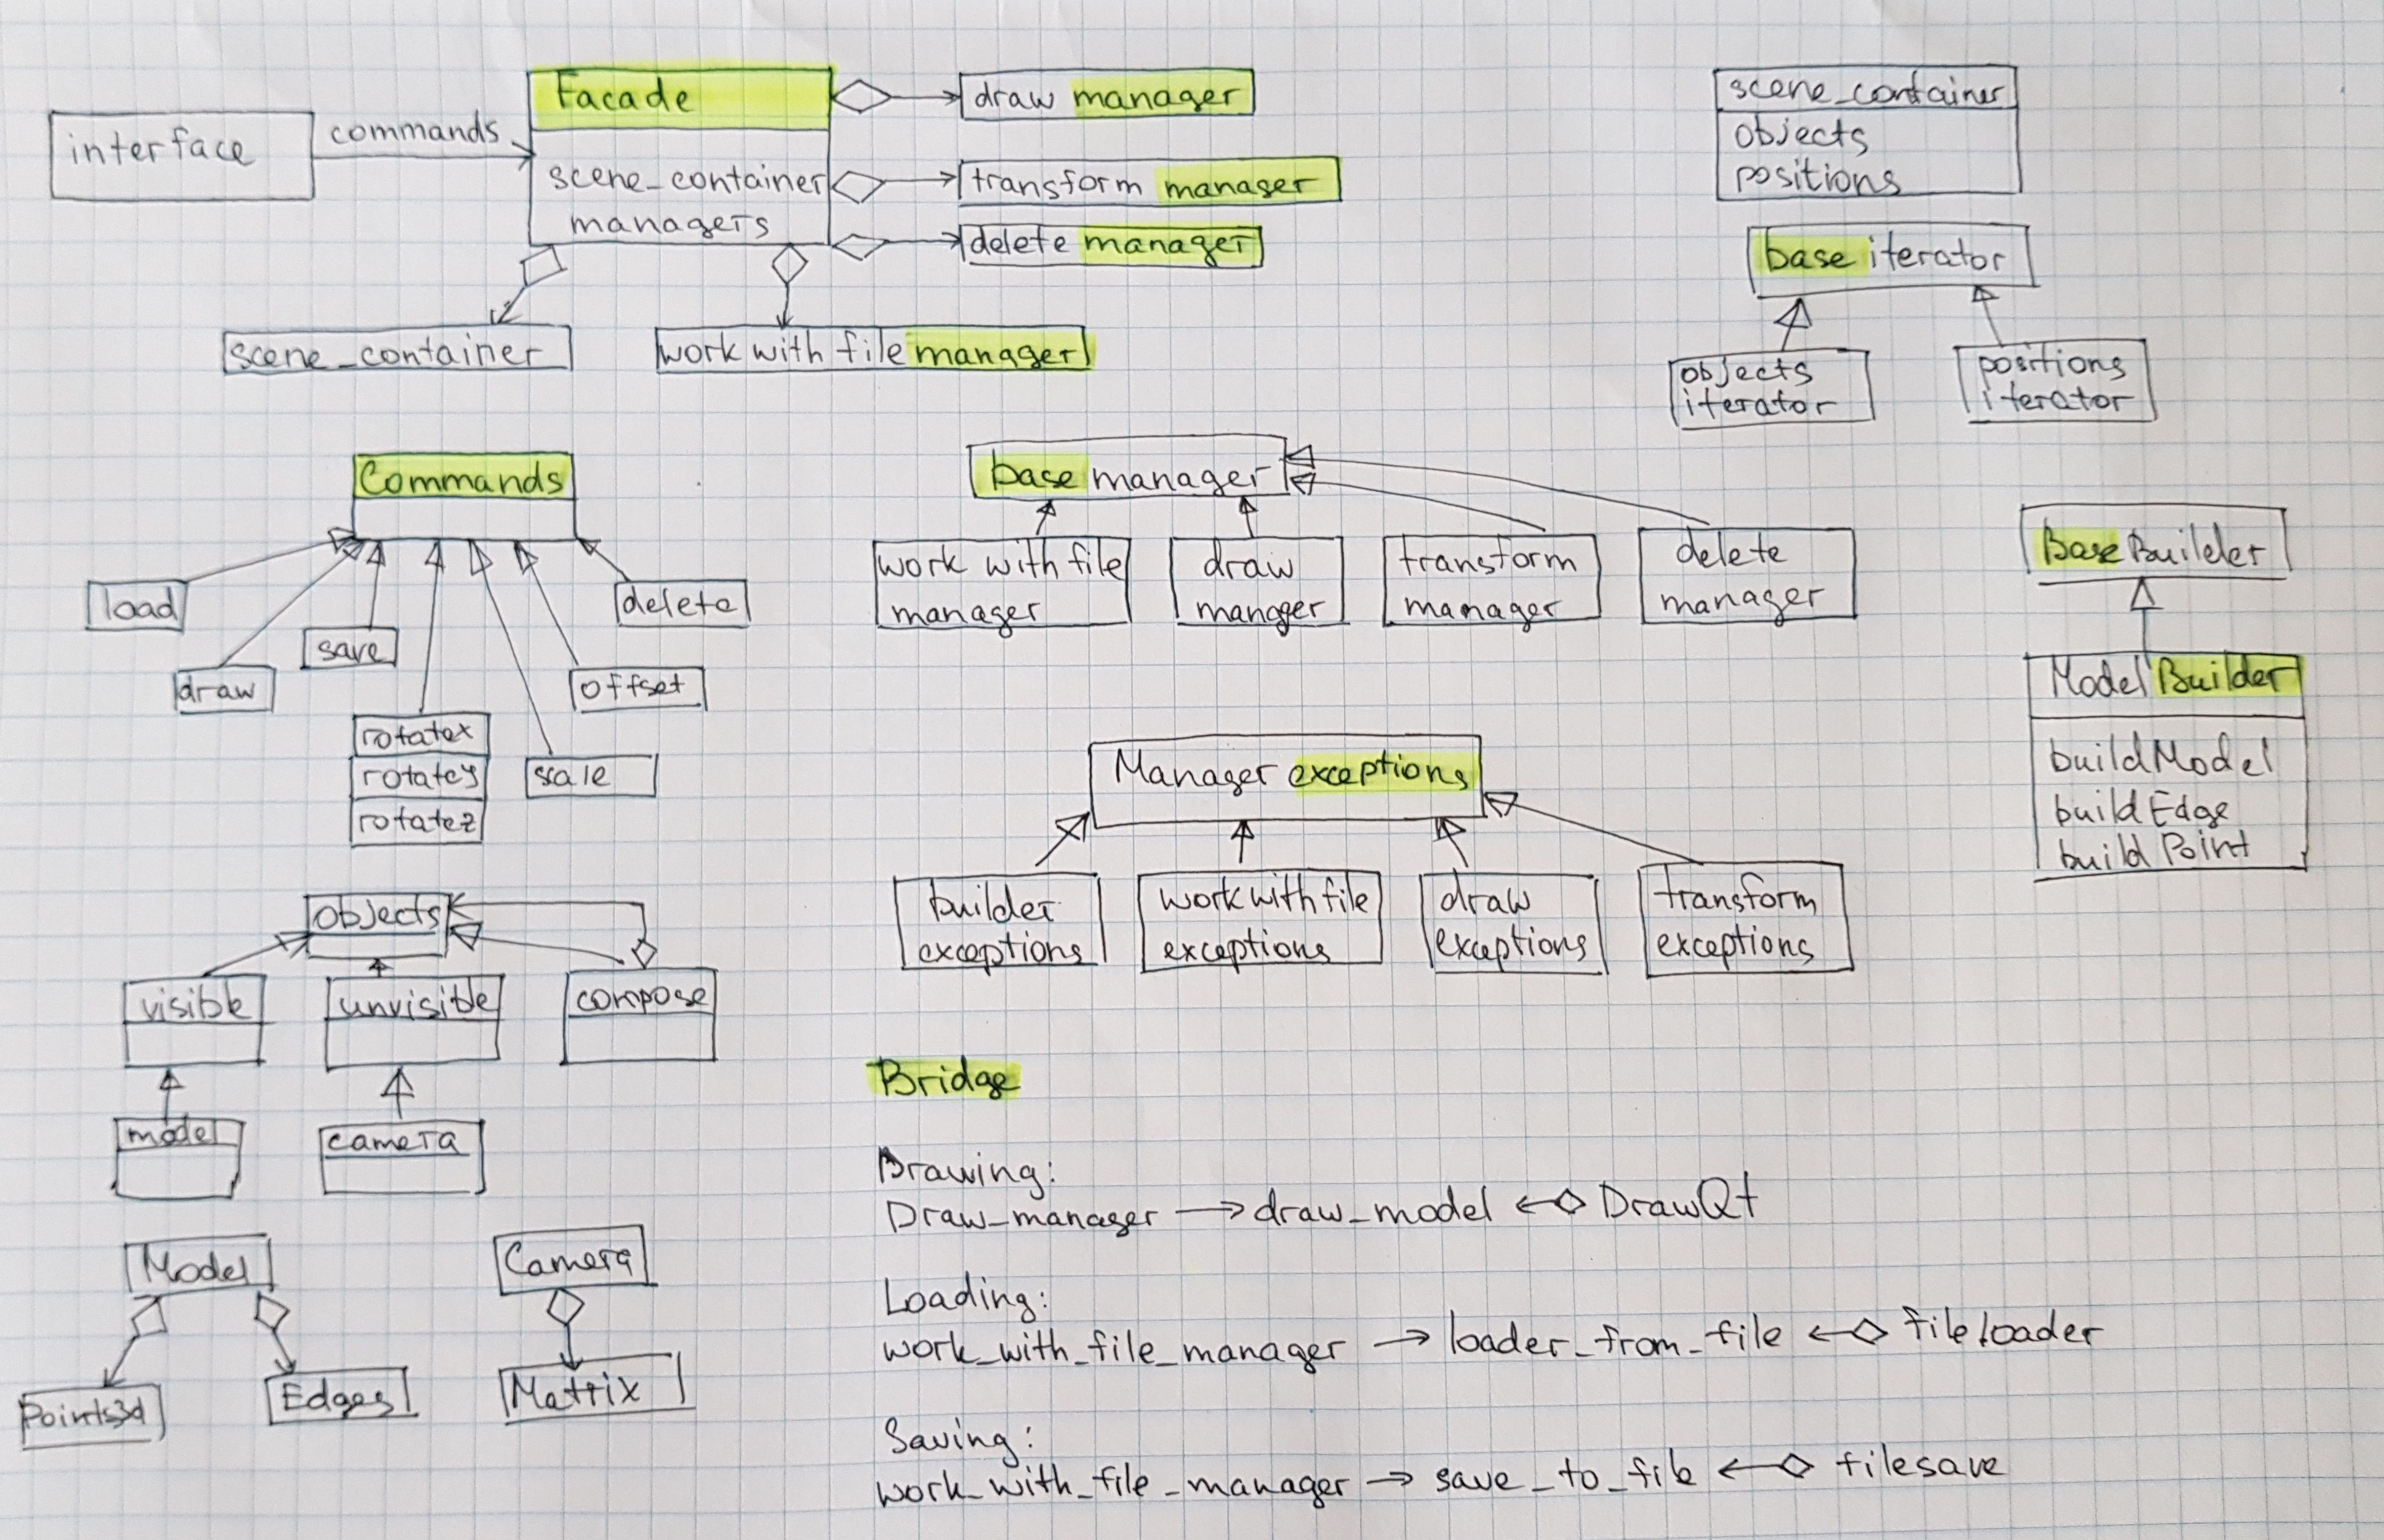 Facade
scene_container
managers
interface
commands
draw manager
transform manager
delete manager
scene_container
work with file manager
scene_container
objects
positions
base iterator
objects
iterator
positions
iterator
Commands
load
draw
save
rotatex
rotatey
rotatez
scale
offset
delete
base manager
work with file
manager
draw
manger
transform
manager
delete
manager
Base Builder
Model Builder
buildModel
buildEdge
build Point
Manager exceptions
builder
exceptions
work with file
exceptions
draw
exceptions
transform
exceptions
objects
visible
unvisible
compose
model
camera
Model
Points3d
Edges
Camera
Matrix
Bridge
Drawing:
Draw_manager → draw_model ←◇ DrawQt
Loading:
work_with_file_manager → loader_from_file ←◇ fileloader
Saving:
work_with_file_manager → save_to_file ←◇ filesave